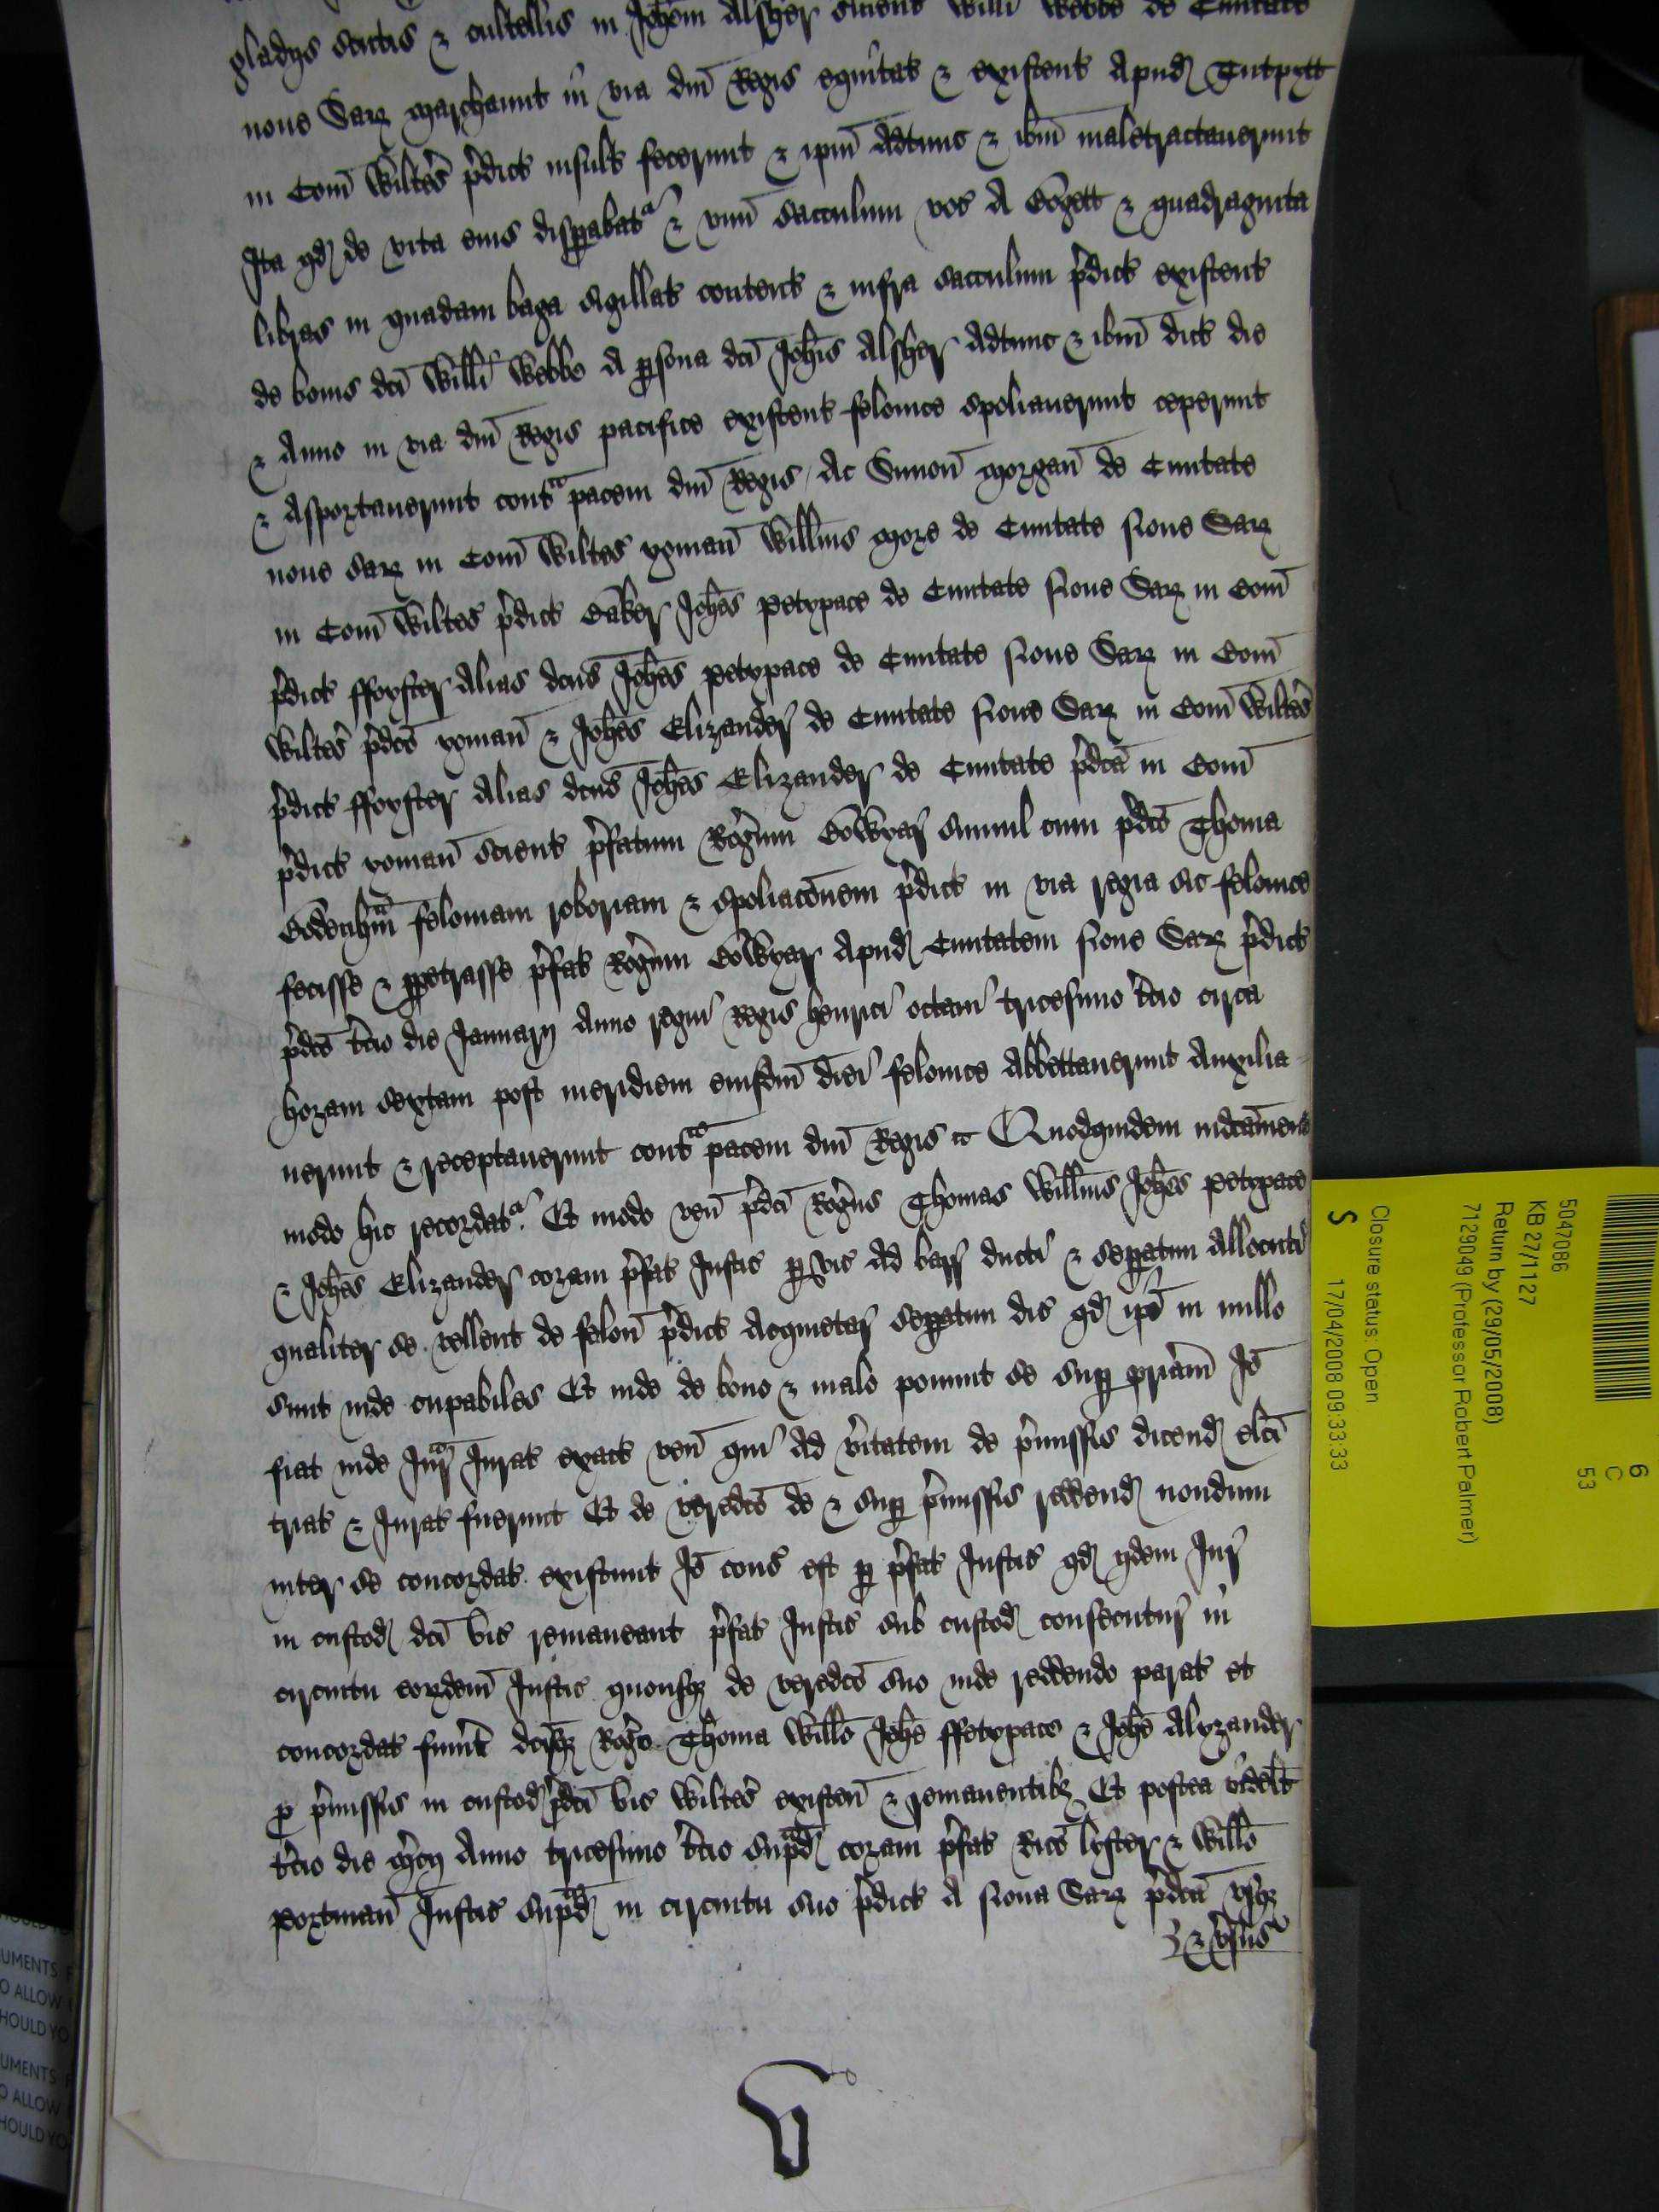 gladijs scutis & cultellis in Joħem Alsher servient Willi Webbe de Civitate
nove Sarȝ marchaunt in via dnī Regis equitat & existent apud Cutpytt
in Com̄ Wiltes p̄dict insult fecerunt & ip̄m adtunc & ibm̄ maletractaverunt
Ita qđ de vita eius disperabatʳ & unū sacculum voc A Bōgett & quadraginta
libras in quadam baga sigillat content & infra sacculum p̄dict existent
de bonis dc̄i Willi Webbe A persona dc̄i Joħis Alsher adtunc & ibm̄ dict die
& Anno in via dnī Regis pacifice existent felonice spoliaverunt ceperunt
& asportaverunt contᵃ pacem dnī Regis Ac Simon̄ Morgan̄ de Civitate
nove Sarȝ in Com̄ Wiltes yoman̄ Willm̄s More de Civitate Nove Sarȝ
in Com̄ Wiltes p̄dict Baker Joħes Petypace de Civitate Nove Sarȝ in Com̄
p̄dict ffoyster alias dcūs Joħes Petypace de Civitate Nove Sarȝ in Com̄
Wiltes p̄dc̄o yoman̄ & Joħes Elizander de Civitate Nove Sarȝ in Com̄ Wiltes
p̄dict ffoyster alias dcūs Joħes Elizander de Civitate p̄dc̄a in Com̄
p̄dict yoman̄ scient p̄fatum Rogm̄ Bōwyar simul cum p̄dc̄o Thoma
Bodenhm̄ feloniam roberiam & spoliacōnem p̄dict in via regia sic felonice
fecisse & perpetrasse p̄fat Rogm̄ Bowyar apud Civitatem Nove Sarȝ p̄dict
p̄dc̄o t̄cio die Januarij anno regni Regis Henrici octavi tricesimo t̄cio circa
horam sextam post meridiem eiusdm̄ diei felonice abbettaverunt auxilia-
verunt & receptaverunt contᵃ pacem dnī Regis &c Quodquidem indc̄amen̄t
modo hic recordatʳ Et modo ven̄ p̄dc̄i Roḡus Thomas Willm̄s Joħes Petypace
& Joħes Elizander coram p̄fat Justic per vic ad barr ducti & sepatim allocuti
qualiter se vellent de felon̄ p̄dict acquietar sepatim dic qđ ip̄i in nullo
sunt inde cupabiles Et inde de bono & malo ponunt se sup pr̄iam Iō
fiat inde Jurᵃ Jurat exact ven̄ qui ad v̄itatem de p̄missis dicend elc̄i
triat & Jurat fuerunt Et de veredc̄o de & sup p̄missis reddend nondum
inter se concordat existunt Iō cons est per p̄fat Justic qđ ijdem Jur
in custod dc̄i vic remaneant p̄fat Justic sub custod consecutur in
circuitu eordem Justic quousq de veredc̄o suo inde reddendo parat et
concordat fuint dc̄isq Rogo Thoma Willo Joħe ffetypace & Joħe Alyzander
p p̄missis in custod p̄dc̄i vic Wiltes existen̄ & remanentibȝ Et postea videlt
t̄cio die M̄cij Anno tricesimo t̄cio supᵃd coram p̄fat Rico Lyster & Willo
Portman̄ Justic supᵃd in circuitu suo p̄dict a Nova Sarȝ p̄dc̄a usqȝ
& v̄sus
5047086
KB 27/1127
Return by (29/05/2008)
7129049 (Professor Robert Palmer)
Closure status: Open
S 17/04/2008 09:33:33
6
C
53